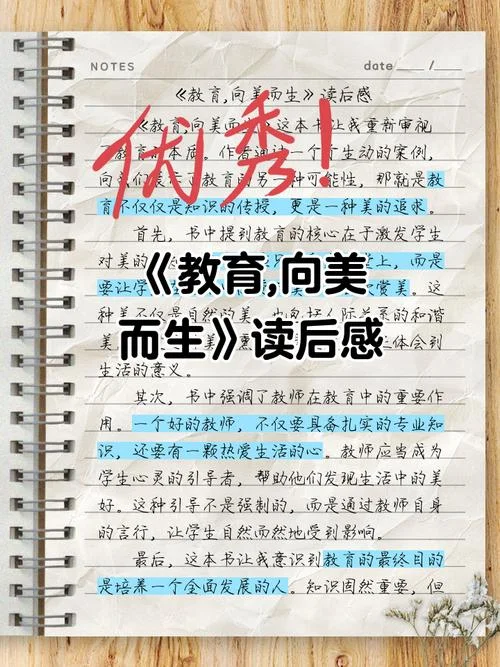 NOTES
date ___ / ___
《教育,向美而生》读后感
优秀!
《教育,向美而生》这本书让我重新审视
教育的本质。作者通过一个个生动的案例,
向我们展示了教育的另一种可能性,那就是教
育不仅仅是知识的传授,更是一种美的追求。
首先,书中提到教育的核心在于激发学生
对美的
上,而是
《教育,向美
要让学
赏美。这
种美不仅是自然的美,
人际关系的和谐
而生》读后感
美
体会到
生活的意义。
其次,书中强调了教师在教育中的重要作
用。一个好的教师,不仅要具备扎实的专业知
识,还要有一颗热爱生活的心。教师应当成为
学生心灵的引导者,帮助他们发现生活中的美
好。这种引导不是强制的,而是通过教师自身
的言行,让学生自然而然地受到影响。
最后,这本书让我意识到教育的最终目的
是培养一个全面发展的人。知识固然重要,但